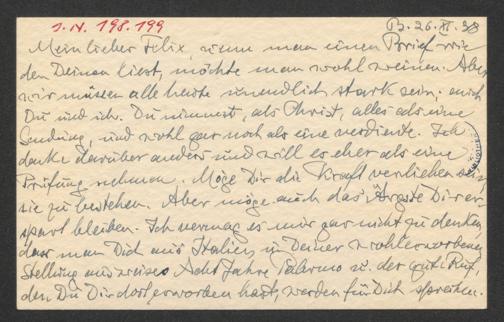 I. N. 198.199
B. 26. XI. 38
Mein lieber Felix, wenn man einen Brief wie
den Deinen liest, möchte man wohl weinen. Aber
wir müssen alle heute unendlich stark sein: auch
Du und ich. Du nimmst, als Christ, alles als eine
Sendung, und wohl gar noch als eine verdiente. Ich
denke darüber anders und will es eher als eine
Prüfung nehmen. Möge Dir die Kraft verliehen sein,
sie zu bestehen. Aber möge auch das Ärgste Dir er-
spart bleiben. Ich vermag es mir gar nicht zu denken,
dass man Dich aus Italien, u. Deiner wohlerworbenen
Stellung ausweise. Acht Jahre Palermo u. der gute Ruf,
den Du Dir dort erworben hast, werden für Dich sprechen.